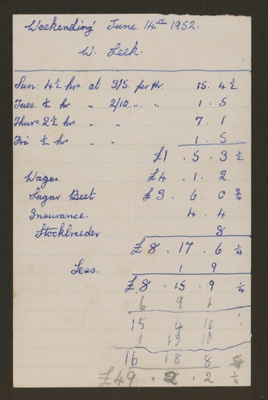 Weekending June 14th 1952.
W. Leek.
Sun. 4½ hrs at 3/5 per hr. 15. 4½
Tues. ½ hr " 2/10 " " 1. 5
Thurs. 2½ hrs " " 7. 1
Fri ½ hr " " 1. 5
£1. 5. 3½
Wages. £4. 1. 2
Sugar Beet £3. 6. 0¾
Insurance. 4. 4
Stockbreeder 8
£8. 17. 6¼
Less. 1. 9
£8. 15. 9¼
6 9 1
15 4 10
16 18 8
£49. 2. 2